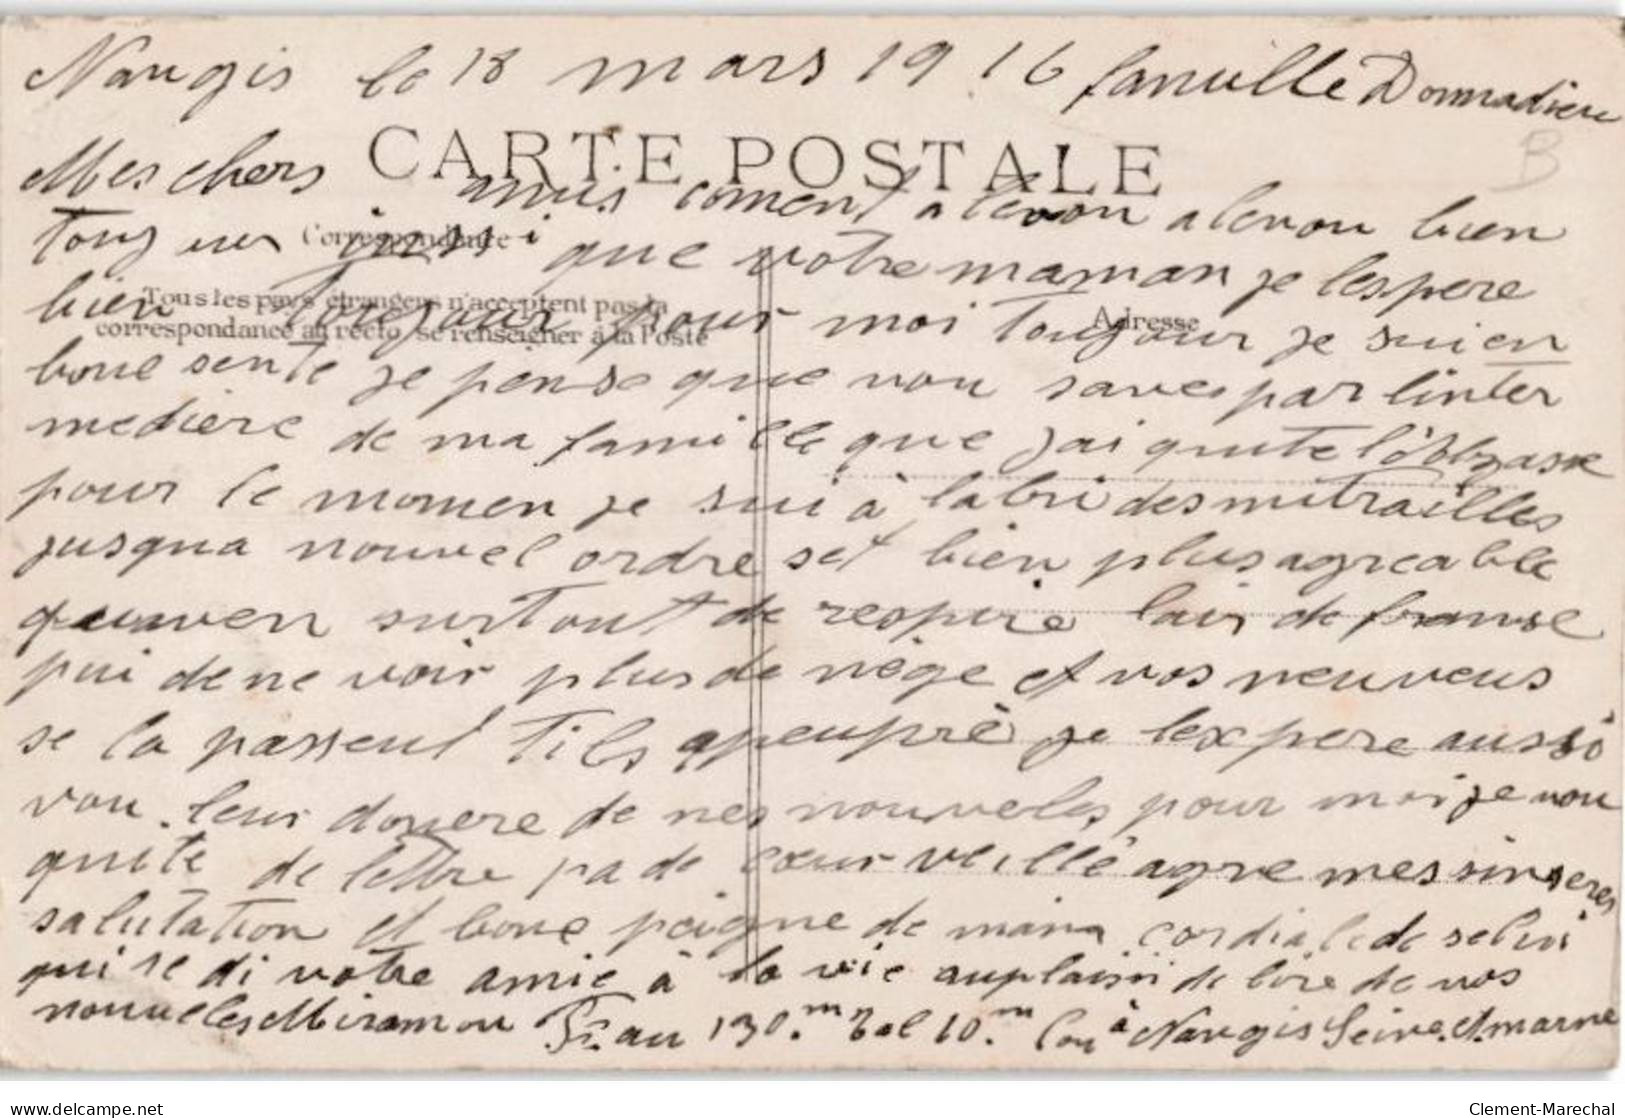 Nangis le 18 mars 19 16 famille Donnadieu
CARTE POSTALE
Mes chers amis coment alevou alevou bien
Correspondance
toujour insi que votre maman je lespere
Tous les pays étrangers n'acceptent pas la
correspondance au recto, se renseigner à la Poste
Adresse
bien toujour pour moi toujour je sui en
bone sente je pense que vou saves par linter
mediere de ma famille que jai quite
pour le momen je sui à labri des mitrailles
jusqua nouvel ordre set bien plus agreable
surtout de respire lair de franse
pui de ne voir plus de nège et vos neuveus
se la passeut tils apeuprè je lexpere aussi
vou leur donere de nes nouveles pour moi je vou
quite de lettre pa de cœur veillé agre mes sinseres
salutation et bone poigne de main cordiale de selui
qui se di votre amie à la vie au plaisir de lire de vos
nouvelles Miramon au 130.m Bat 10.m Con à Nangis Seine et marne
B
www.delcampe.net
Clement-Marechal